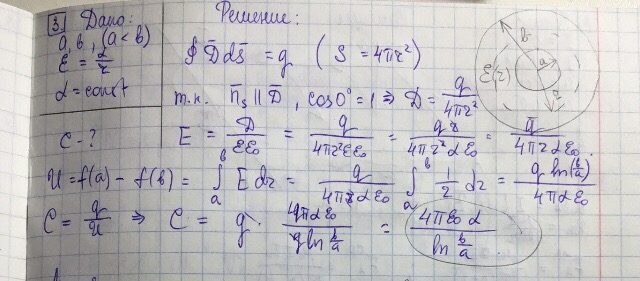 3 Дано: Решение:
a, b, (a < b)
ε = α/r
α = const
∮ D̄ dS̄ = q ( S = 4πr² )
т.к. n̄ₛ ∥ D̄, cos0° = 1 ⇒ D = q/4πr²
C - ?
E = D/εε₀ = q/4πr²εε₀ = qr/4πr²αε₀ = q/4πrαε₀.
U = f(a) - f(b) = ∫ₐᵇ E dr = q/4παε₀ ∫ₐᵇ 1/r dr = q ln(b/a)/4παε₀
C = q/U ⇒ C = q · 4παε₀/q ln b/a = 4πε₀α/ln b/a
b
a
ε(r)